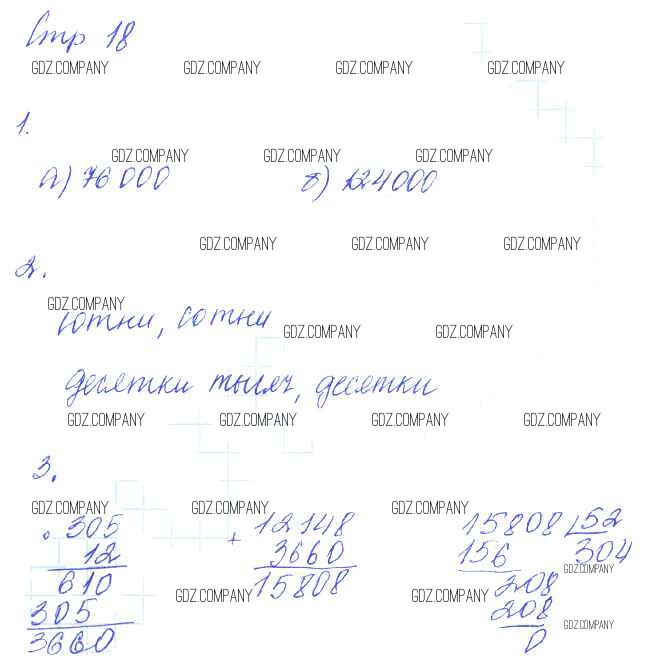 Стр 18
GDZ.COMPANY GDZ.COMPANY GDZ.COMPANY GDZ.COMPANY
1.
GDZ.COMPANY GDZ.COMPANY GDZ.COMPANY
а) 76 000 б) 124000
GDZ.COMPANY GDZ.COMPANY GDZ.COMPANY
2.
GDZ.COMPANY
сотни, сотни
GDZ.COMPANY GDZ.COMPANY
десятки тысяч, десятки
GDZ.COMPANY GDZ.COMPANY GDZ.COMPANY GDZ.COMPANY
3.
GDZ.COMPANY GDZ.COMPANY GDZ.COMPANY
· 305 + 12148 15808 52
12 3660 156 304
GDZ.COMPANY
610 15808 208
GDZ.COMPANY GDZ.COMPANY
305 208
GDZ.COMPANY
3660 0